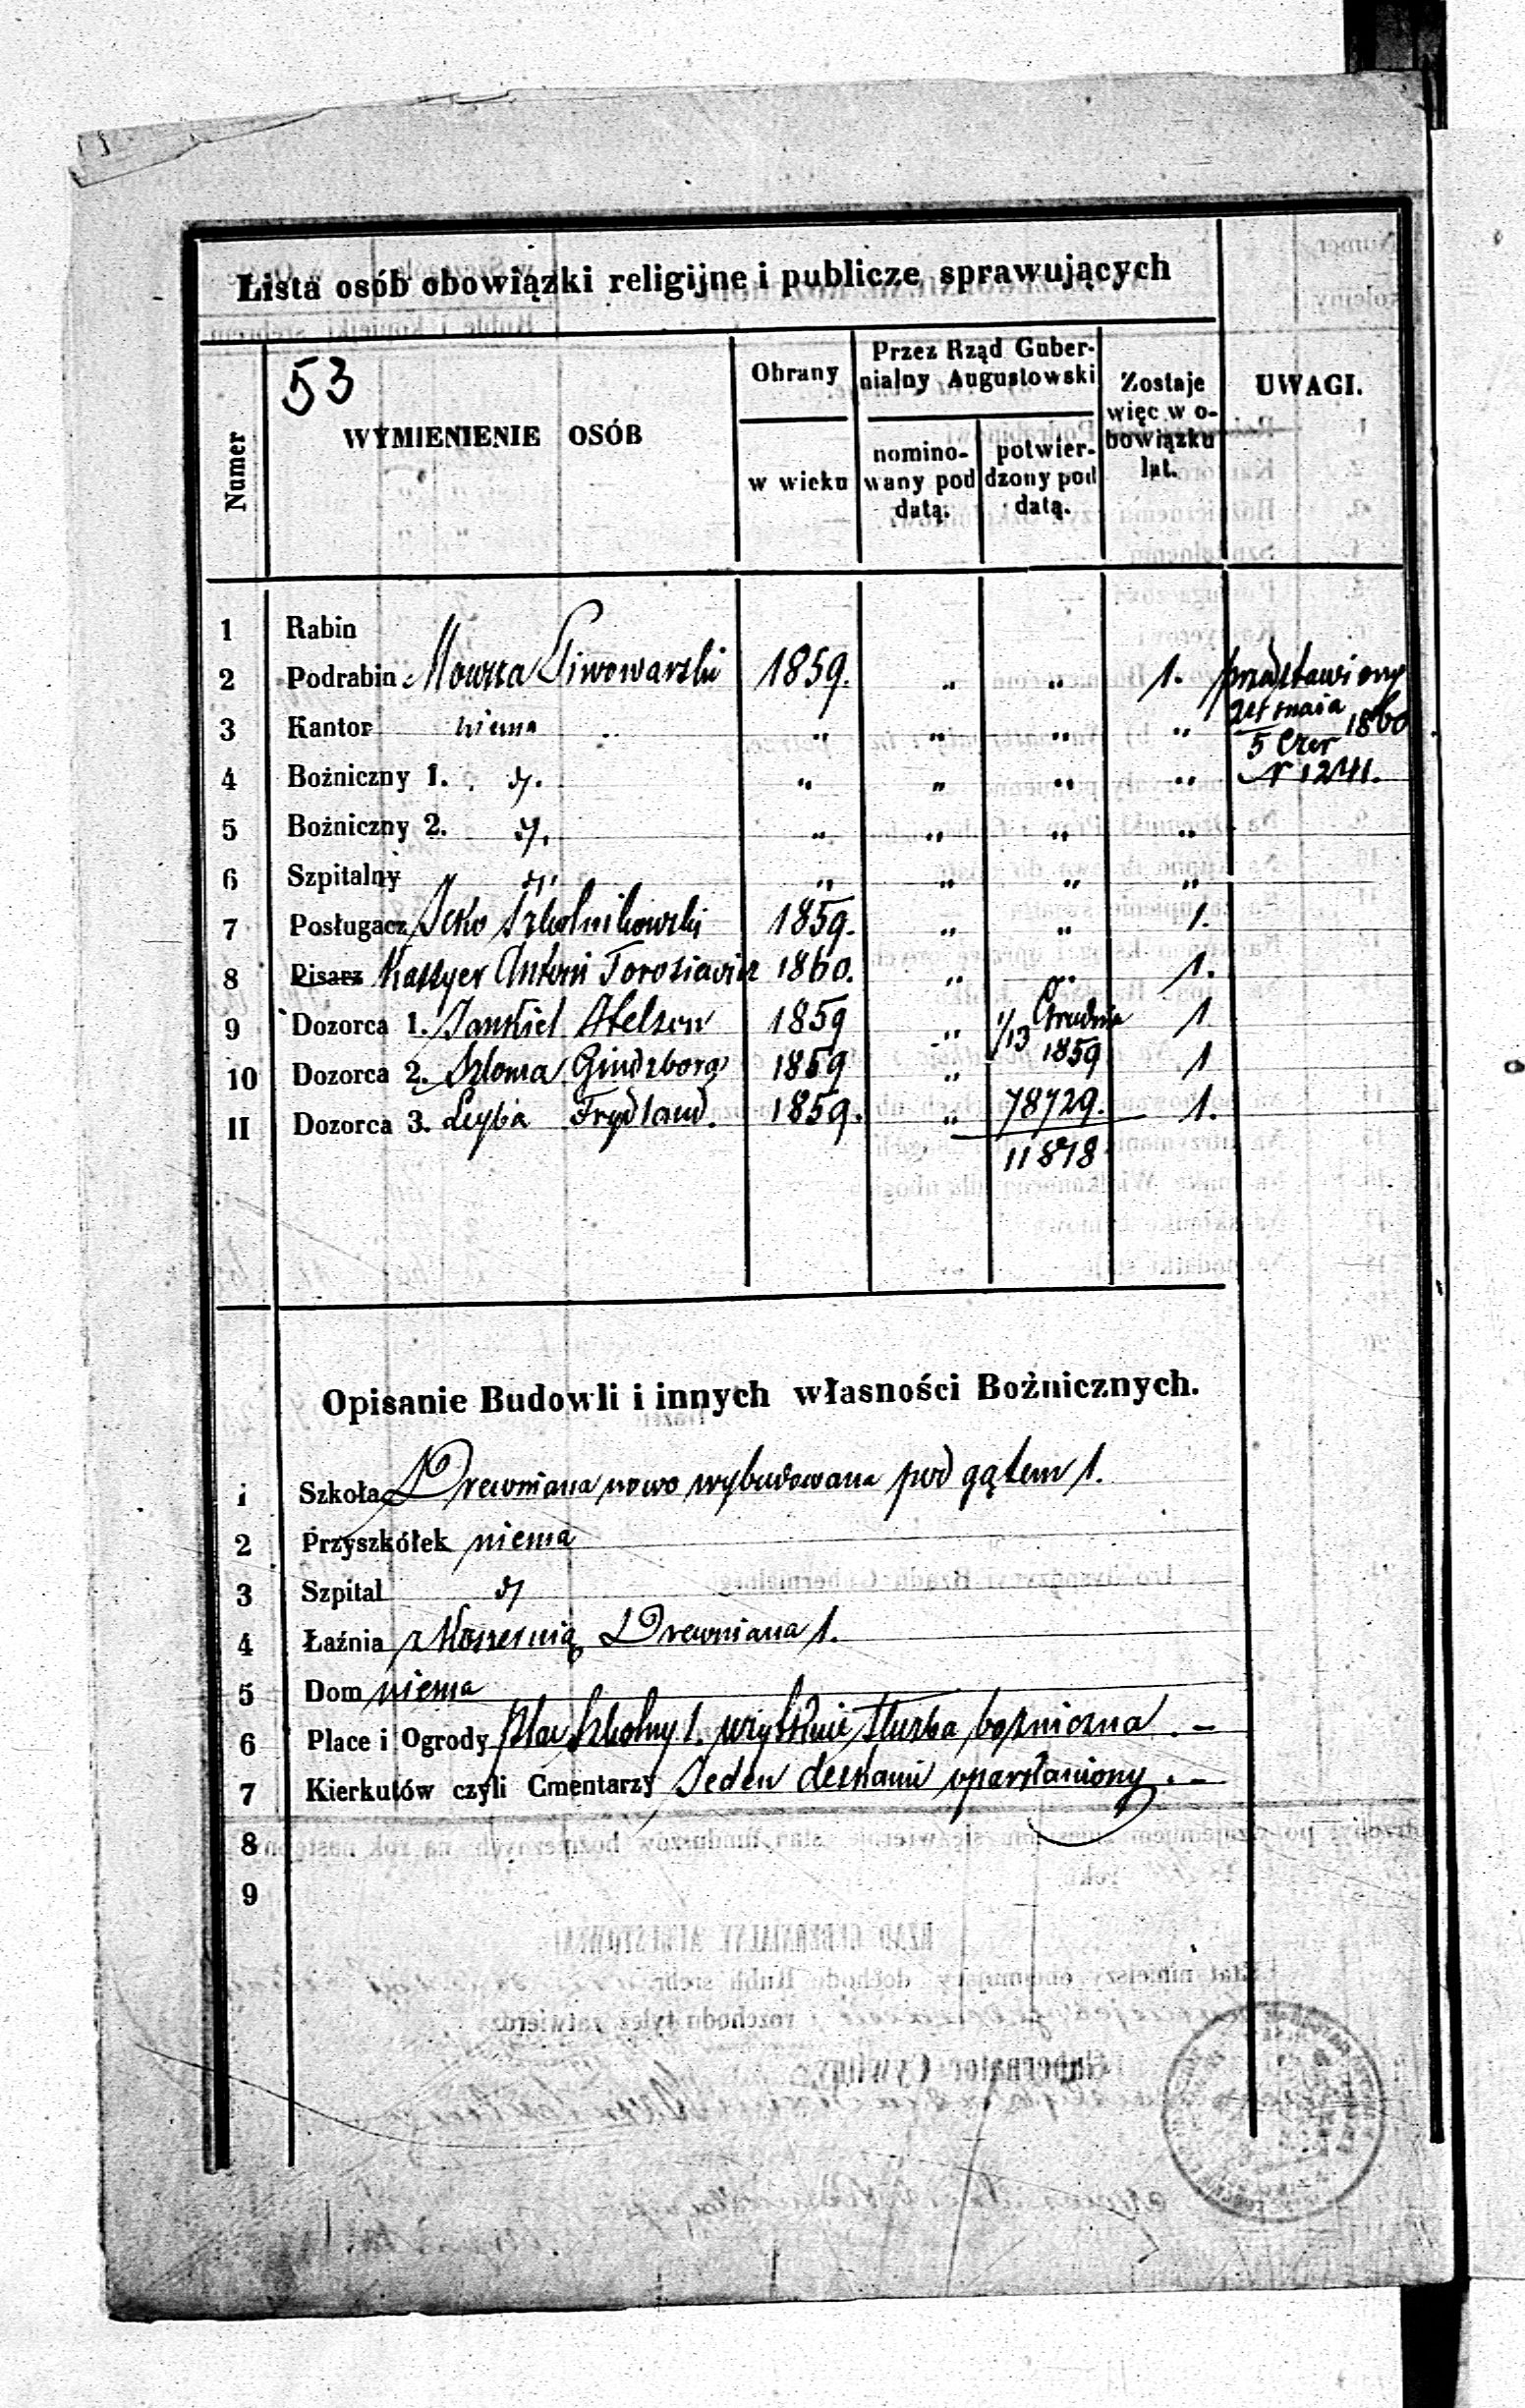 Lista osób obowiązki religijne i publicze sprawujących
53
Numer
WYMIENIENIE OSÓB
Obrany
w wieku
Przez Rząd Guber-
nialny Augustowski
nomino-
wany pod
datą:
potwier-
dzony pod
datą.
Zostaje
więc w o-
bowiązku
lat.
UWAGI.
1 Rabin
2 Podrabin Mowsza Piwowarski 1859. „ „ 1. przedstawiony
24 maia
5 Czer 1860
N 12411.
3 Kantor niema „ „ „ „
4 Bożniczny 1. dy. „ „ „ „
5 Bożniczny 2. dy. „ „ „ „
6 Szpitalny dy. „ „ „ „
7 Posługacz Icko Szkolnikowski 1859. „ „ 1.
8 Pisarz Kassyer Antoni 1860. „ „ 1.
9 Dozorca 1. Jankiel Abelson 1859 „ 1/13 Grudnia 1
10 Dozorca 2. Szloma Gindzborg 1859 „ 1859 1
11 Dozorca 3. Leyba Frydland. 1859. „ 78729. 1.
11878
Opisanie Budowli i innych własności Bożnicznych.
1 Szkoła Drewniana nowo wybudowana pod gątem 1.
2 Przyszkółek niema
3 Szpital dy
4 Łaźnia z Koszernią Drewniana 1.
5 Dom niema
6 Place i Ogrody Plac Szkolny 1. służba bożniczna. –
7 Kierkutów czyli Cmentarzy Jeden deskami oparkaniony. –
8
9